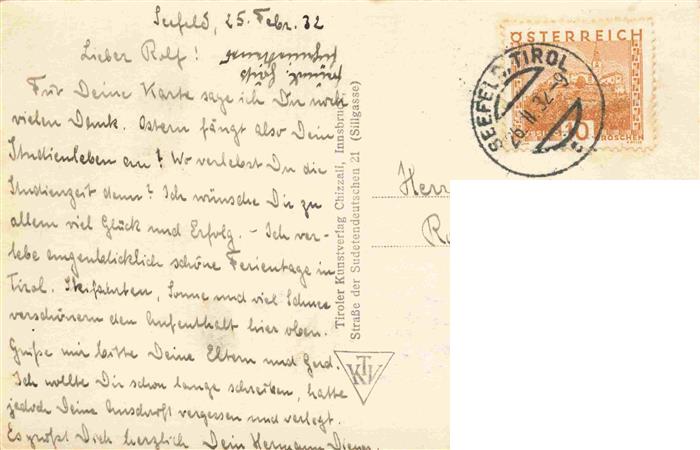 Seefeld, 25. Febr. 32
Lieber Rolf!
Für Deine Karte sage ich Dir noch
vielen Dank. Ostern fängt also Dein
Studienleben an? Wo verlebst Du die
Studienzeit denn? Ich wünsche Dir zu
allem viel Glück und Erfolg. – Ich ver-
lebe augenblicklich schöne Ferientage in
Tirol. Skifahrten, Sonne und viel Schnee
verschönern den Aufenthalt hier oben.
Grüße mir bitte Deine Eltern und Gerd.
Ich wollte Dir schon lange schreiben, hatte
jedoch Deine Anschrift vergessen und verlegt.
Es grüßt Dich herzlich Dein Hermann
Tiroler Kunstverlag Chizzali, Innsbruck,
Straße der Sudetendeutschen 21 (Sillgasse)
KTV
ÖSTERREICH
10
GROSCHEN
SEEFELD, TIROL
26. II. 32 -9
Herr